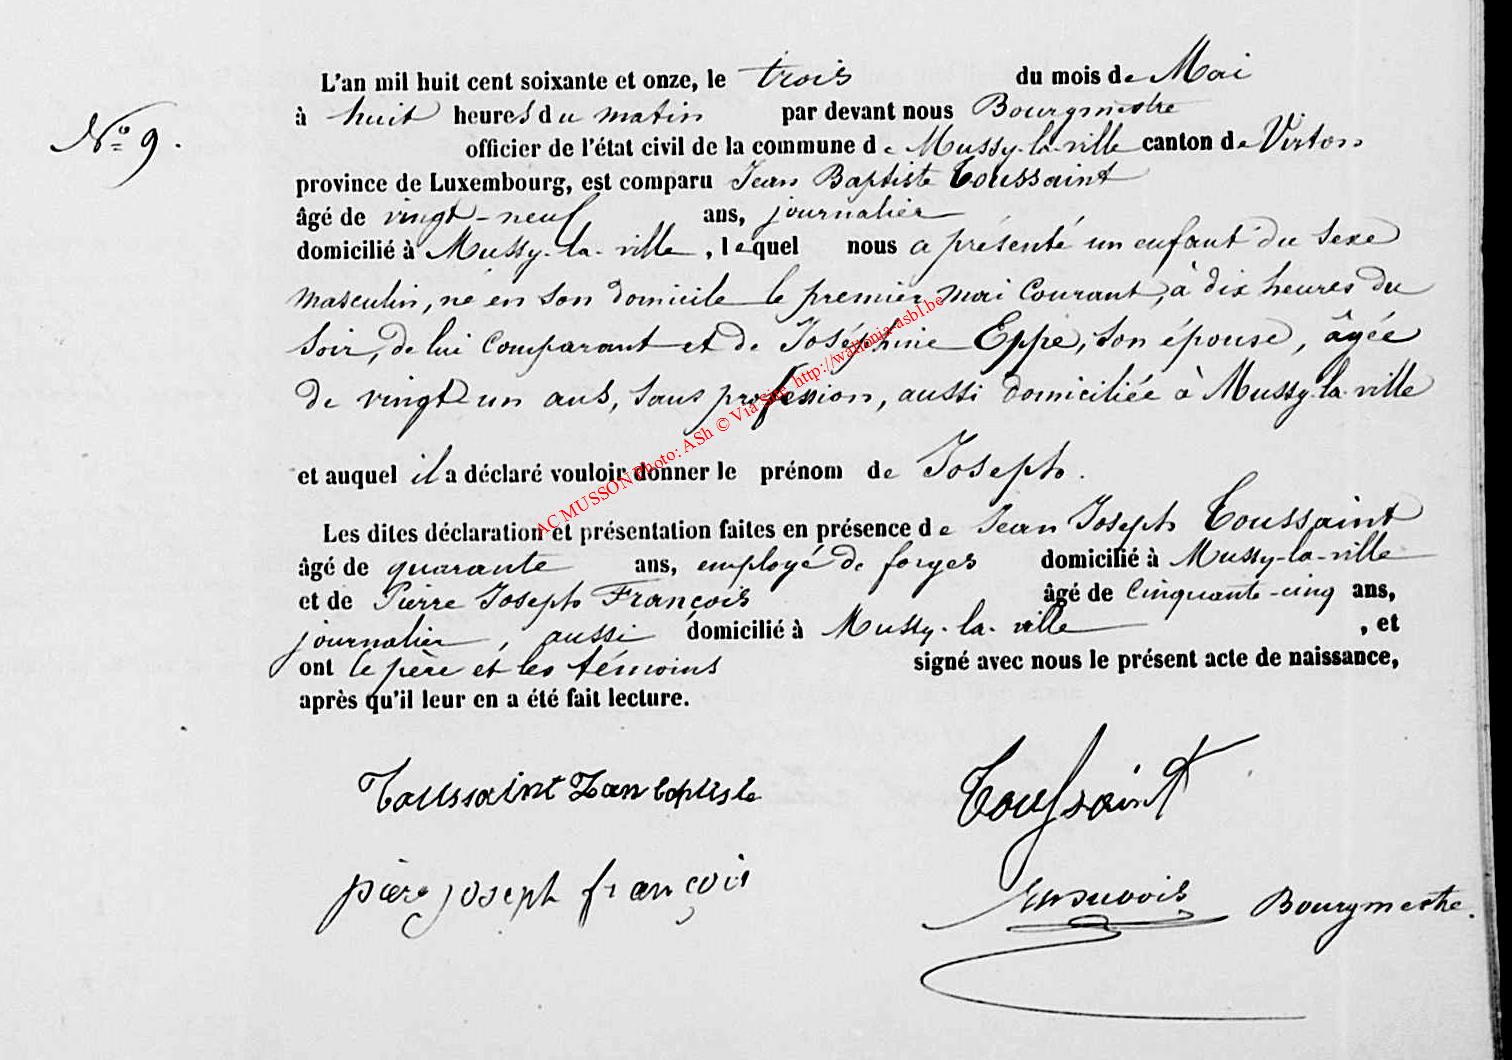 L'an mil huit cent soixante et onze, le trois du mois de Mai
N° 9.
à huit heures du matin par devant nous Bourgmestre
officier de l'état civil de la commune de Mussy-la-ville canton de Virton
province de Luxembourg, est comparu Jean Baptiste Toussaint
âgé de vingt-neuf ans, journalier
domicilié à Mussy-la-ville, lequel nous a présenté un enfant du sexe
masculin, né en son domicile le premier mai courant, à dix heures du
soir, de lui comparant et de Joséphine Eppe, son épouse, âgée
de vingt un ans, sans profession, aussi domiciliée à Mussy-la-ville
et auquel il a déclaré vouloir donner le prénom de Joseph.
AC MUSSON Photo: ASh © Via Site http://wallonia-asbl.be
Les dites déclaration et présentation faites en présence de Jean Joseph Toussaint
âgé de quarante ans, employé de forges domicilié à Mussy-la-ville
et de Pierre Joseph François âgé de cinquante-cinq ans,
journalier, aussi domicilié à Mussy-la-ville, et
ont le père et les témoins signé avec nous le présent acte de naissance,
après qu'il leur en a été fait lecture.
Toussaint Jean baptiste Toussaint
pière joseph françois
Bourgmestre.